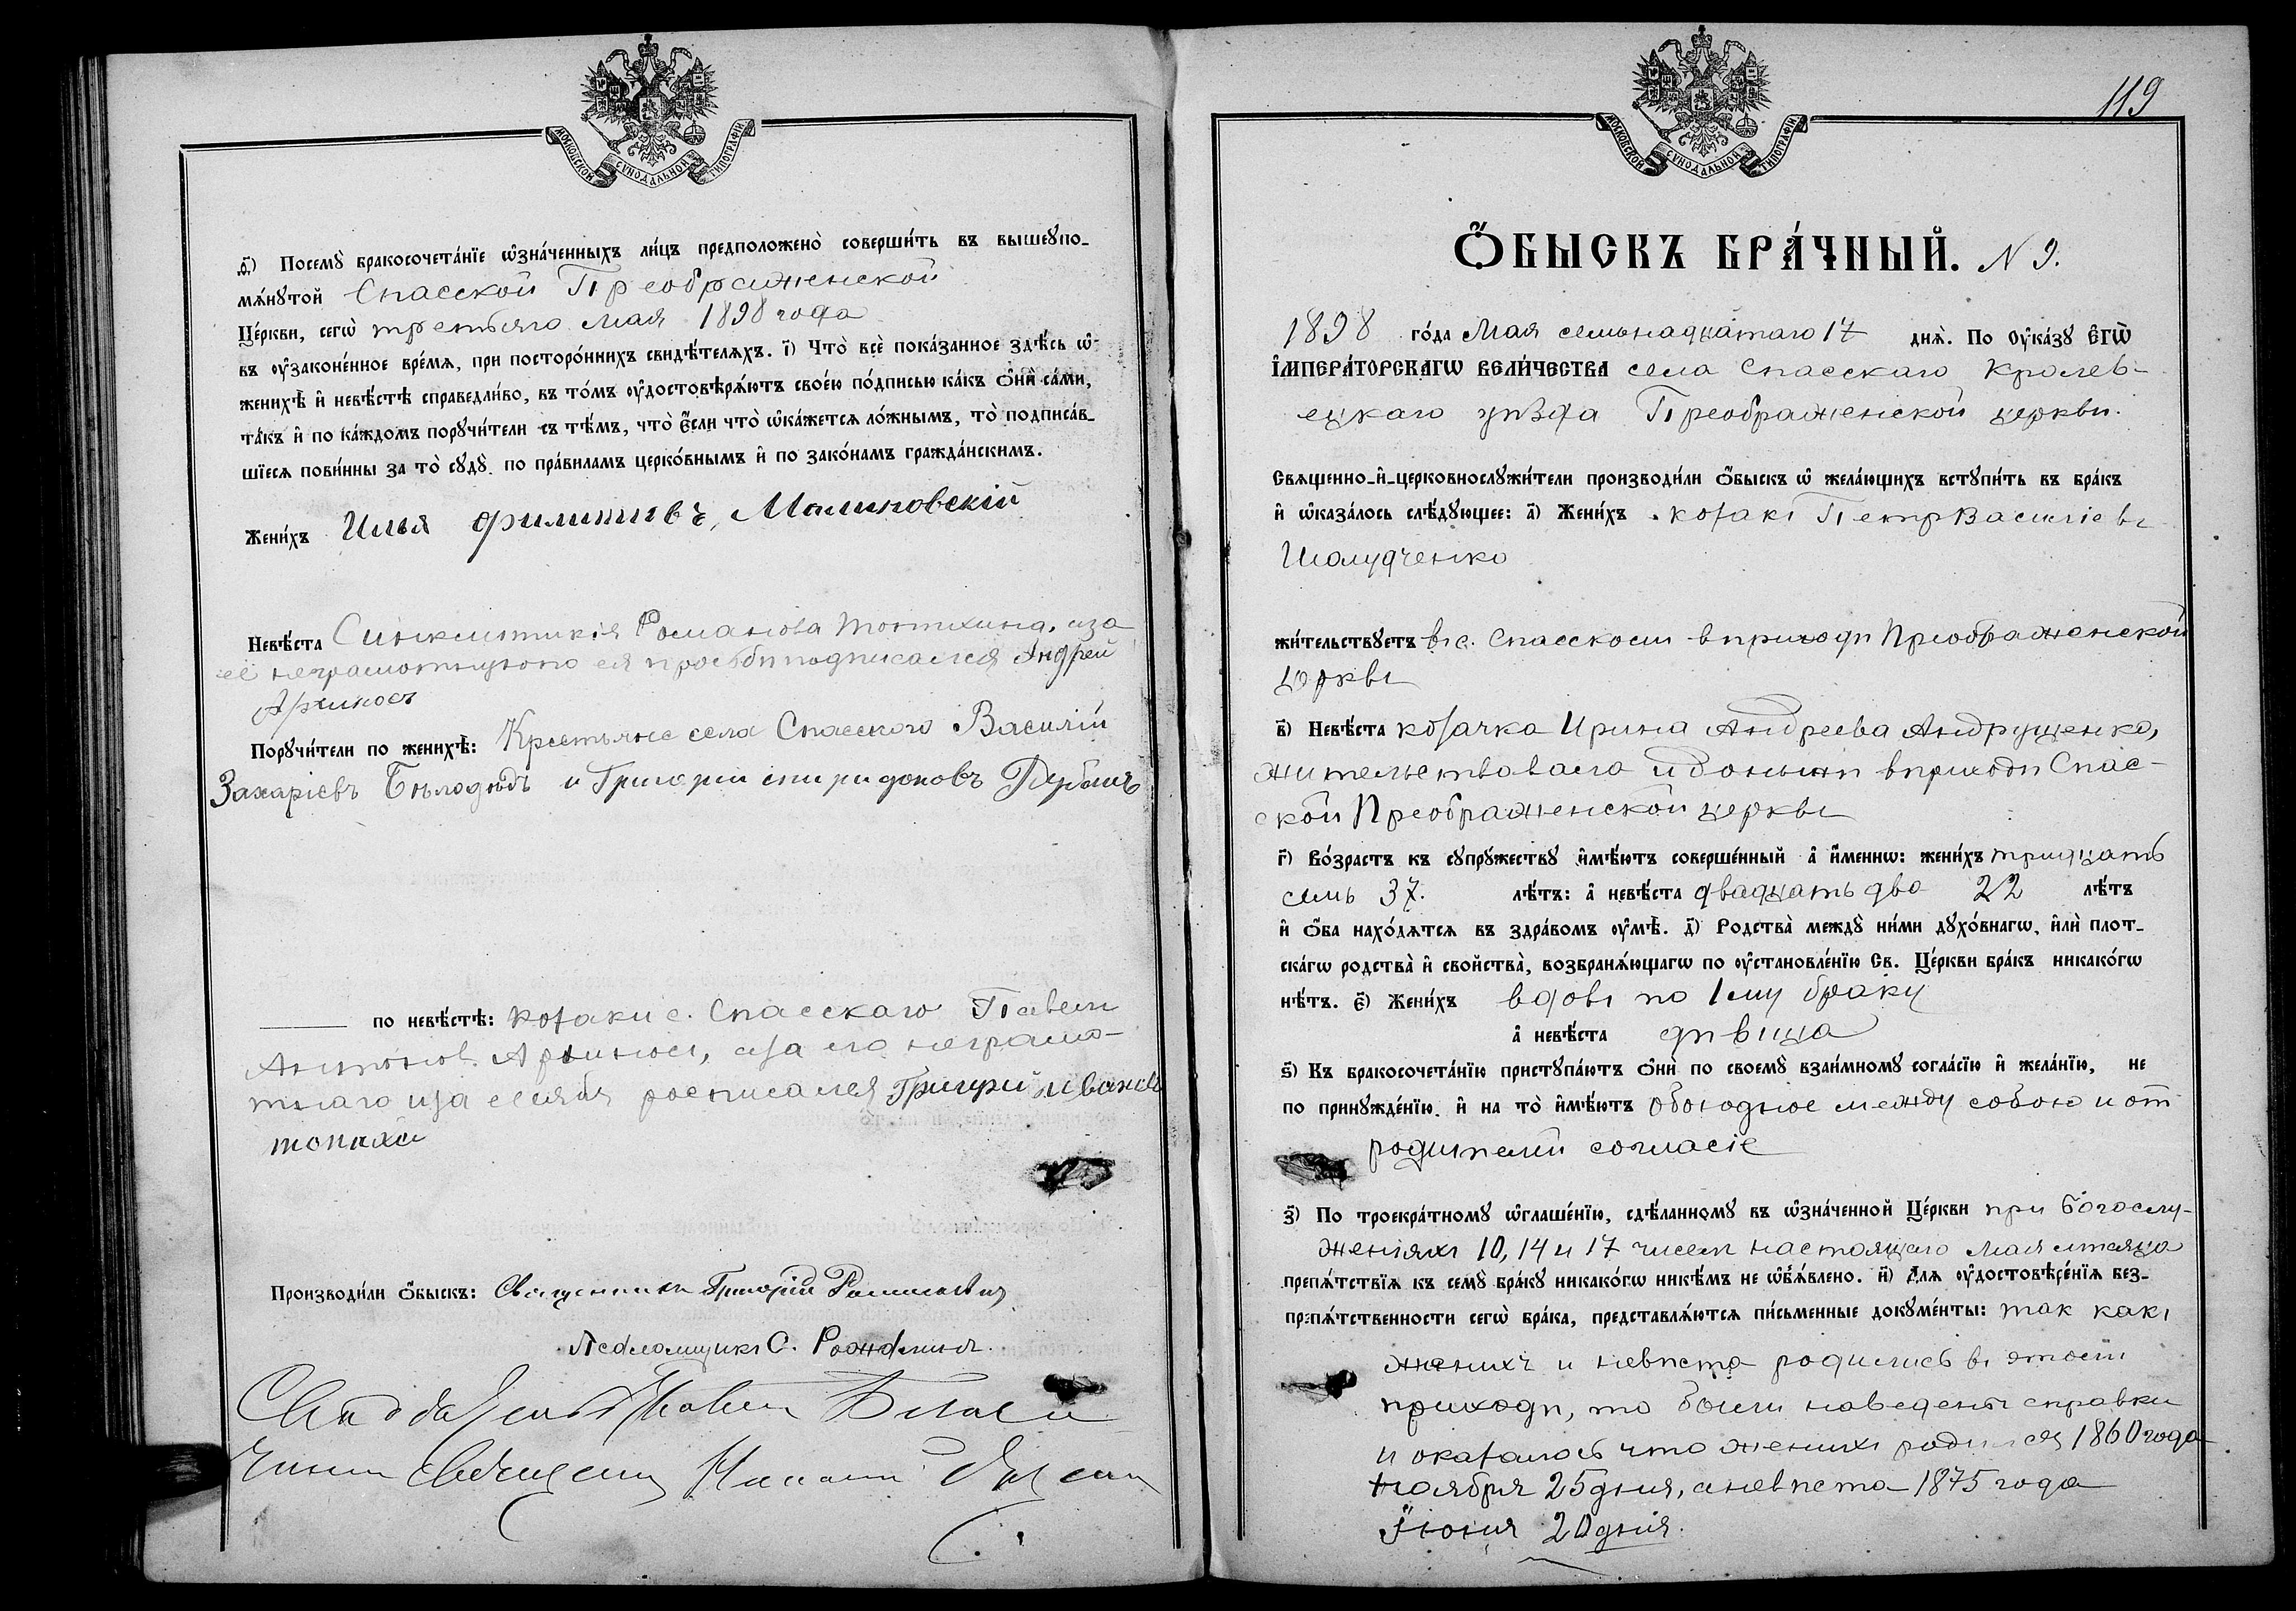 МОСКОВСКОЙ СѴНОДАЛЬНОЙ ТИПОГРАФІИ
ѳ҃) Посемꙋ̀ бракосочета́нїе ѡ҆зна́ченныхъ ли́цъ предположено̀ соверши́ть въ вышеꙋпо-
мѧ́нꙋтой Спасской Преображенской
Це́ркви, сегѡ̀ третьяго мая 1898 года
въ ᲂу҆законе́нное вре́мѧ, при посторо́ннихъ свидѣ́телѧхъ. і҃) Что̀ всѐ пока́занное здѣ́сь ѡ҆
женихѣ̀ и҆ невѣ́стѣ справедли́во, въ то́мъ ᲂу҆достовѣрѧ́ютъ свое́ю по́дписью ка́къ ѻ҆нѝ са́ми,
та́къ и҆ по ка́ждомъ порꙋчи́тели съ тѣ́мъ, что̀ є҆́сли что̀ ѡ҆ка́жетсѧ ло́жнымъ, то̀ подписа́в-
шїесѧ пови́нны за то̀ сꙋдꙋ̀ по пра́виламъ церко́внымъ и҆ по зако́намъ гражда́нскимъ.
Жени́хъ Илья Филиповъ, Малиновскій
Невѣ́ста Синклитикія Романова Топтихина, и за
её неграмотную по ея просьбѣ подписался Андрей
Архипов
Порꙋчи́тели по женихѣ̀: Крестьяне села Спасского Василій
Захаріевъ Бѣлодѣдъ и Григорій спиридоновъ
по невѣ́стѣ: козаки с. Спасскаго Павел
Антонов, а за его неграмо-
тнаго и за себя росписался Григорій иванов
топиха
Производи́ли ѻ҆́быскъ: Священникъ Григорій
Псаломщикъ С.
МОСКОВСКОЙ СѴНОДАЛЬНОЙ ТИПОГРАФІИ
119
Ѻ҆́БЫСКЪ БРА́ЧНЫЙ. N 9.
1898 го́да Мая семьнадцатаго 17 днѧ̀. По Оу҆ка́зꙋ Є҆ГѠ̀
І҆МПЕРА́ТОРСКАГѠ ВЕЛИ́ЧЕСТВА села Спасскаго Кролев-
ецкаго уѣзда Преображенской церкви.
Свѧщенно-и҆-церковнослꙋжи́тели производи́ли ѻ҆́быскъ ѡ҆ жела́ющихъ встꙋпи́ть въ бра́къ
и҆ ѡ҆каза́лось слѣ́дꙋющее: а҃) Жени́хъ козакъ Петръ Васильевъ
Шолудченко
жи́тельствꙋетъ въ с. Спасском в приходѣ Преображенской
церкви
в҃) Невѣ́ста козачка Ирина Андреева Андрущенко,
жительствовала и донынѣ в приходѣ Спас-
ской Преображенской церкви
г҃) Во́зрастъ къ сꙋпрꙋжествꙋ и҆мѣ́ютъ соверше́нный а҆ и҆́меннѡ: жени́хъ тридцать
семь 37. лѣ́тъ: а҆ невѣ́ста двадцать два 22 лѣ́тъ
и҆ ѻ҆́ба нахо́дѧтсѧ въ здра́вомъ ᲂу҆мѣ̀. д҃) Родства̀ междꙋ̀ ни́ми дꙋхо́внагѡ, и҆лѝ плот-
ска́гѡ родства̀ и҆ свойства̀, возбранѧ́ющагѡ по ᲂу҆становле́нїю Св. Це́ркви бра́къ никако́гѡ
нѣ́тъ. є҃) Жени́хъ вдовъ по 1му браку
а҆ невѣ́ста дѣвица
ѕ҃) Къ бракосочета́нїю пристꙋпа́ютъ ѻ҆нѝ по своемꙋ̀ взаи́мномꙋ согла́сїю и҆ жела́нїю, не
по принꙋжде́нїю. и҆ на то̀ и҆мѣ́ютъ обоюдное между собою и от
родителей согласіе
з҃) По троекра́тномꙋ ѡ҆глаше́нїю, сдѣ́ланномꙋ въ ѡ҆зна́ченной Це́ркви при Богослу-
женіяхъ 10, 14 и 17 чисел настоящаго мая мѣсяца
препѧ́тствїѧ къ семꙋ̀ бра́кꙋ никако́гѡ никѣ́мъ не ѡ҆б̾ѧ́влено. и҃) Длѧ ᲂу҆достовѣре́нїѧ без-
препѧ́тственности сегѡ̀ бра́ка, представлѧ́ютсѧ пи́сьменные докꙋме́нты: так какъ
женихъ и невѣста родились въ этом
приходѣ, то были наведены справки
и оказалось что женихъ родился 1860 года
ноября 25 дня, а невѣста 1875 года
Іюня 20 дня.